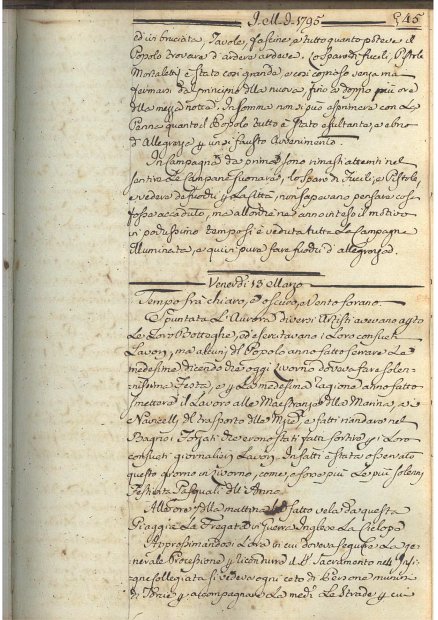 J. M. D. 1795
545
ed in bruciate, Tavole, fascine, e tutto quanto poteva il
Popolo trovare d'ardere ardeva. Lo sparo di fucili, Pistole
Mortaletti è stato così grande, e così copioso senza mai
fermarsi dal principio della nuova, fino a doppo più ore
della mezza notte. In somma non si può esprimere con la
Penna quanto il Popolo tutto è stato esultante, e ebro
d'Allegrezza p un sì fausto Avvenimento.
In Campagna da prima sono rimasti attenti nel
sentire le Campane suonare, lo sparo di Fucili, e Pistole
e vedere da fuochi p la Città, non sapevano pensare cosa
fosse accaduto, ma allorchè ne anno inteso il motivo
in pochissimo tempo si è veduta tutta la Campagna
Illuminata, e quivi pure fare fuochi d'allegrezza.
Venerdì 13 Marzo
Tempo frà chiaro, e oscuro, e Vento forano.
Spuntata L'Aurora diversi Artisti avevano apto
Le Loro Botteghe, ed esercitavano i Loro consueti
Lavori, ma alcuni del Popolo anno fatto serrare Le
medesime dicendo che oggi Livorno doveva fare solen-
nissima Festa, e p La medesima ragione anno fatto
smettere il Lavoro alle Maestranze della Marina, e a
Navicelli del trasporto delle Merci, e fatti rimandare nel
Bagno i Forzati che erono stati fatti sortire p i Loro
consueti giornalieri Lavori. Infatti è stato osservato
questo giorno in Livorno, come, e forse più Le più solenni
Festività Pasquali dell'Anno.
Alle ore della mattina à fatto vela da questa
Spiaggia La Fregata da Guerra Inglese La
Approssimandosi L'ora in cui doveva seguire La ge-
nerale Processione p ricondurre il SS. Sacramento nell'Insi-
gne Collegiata si vedeva ogni ceto di Persone munirsi
di Torcie p accompagnare La med. Le Strade p cui